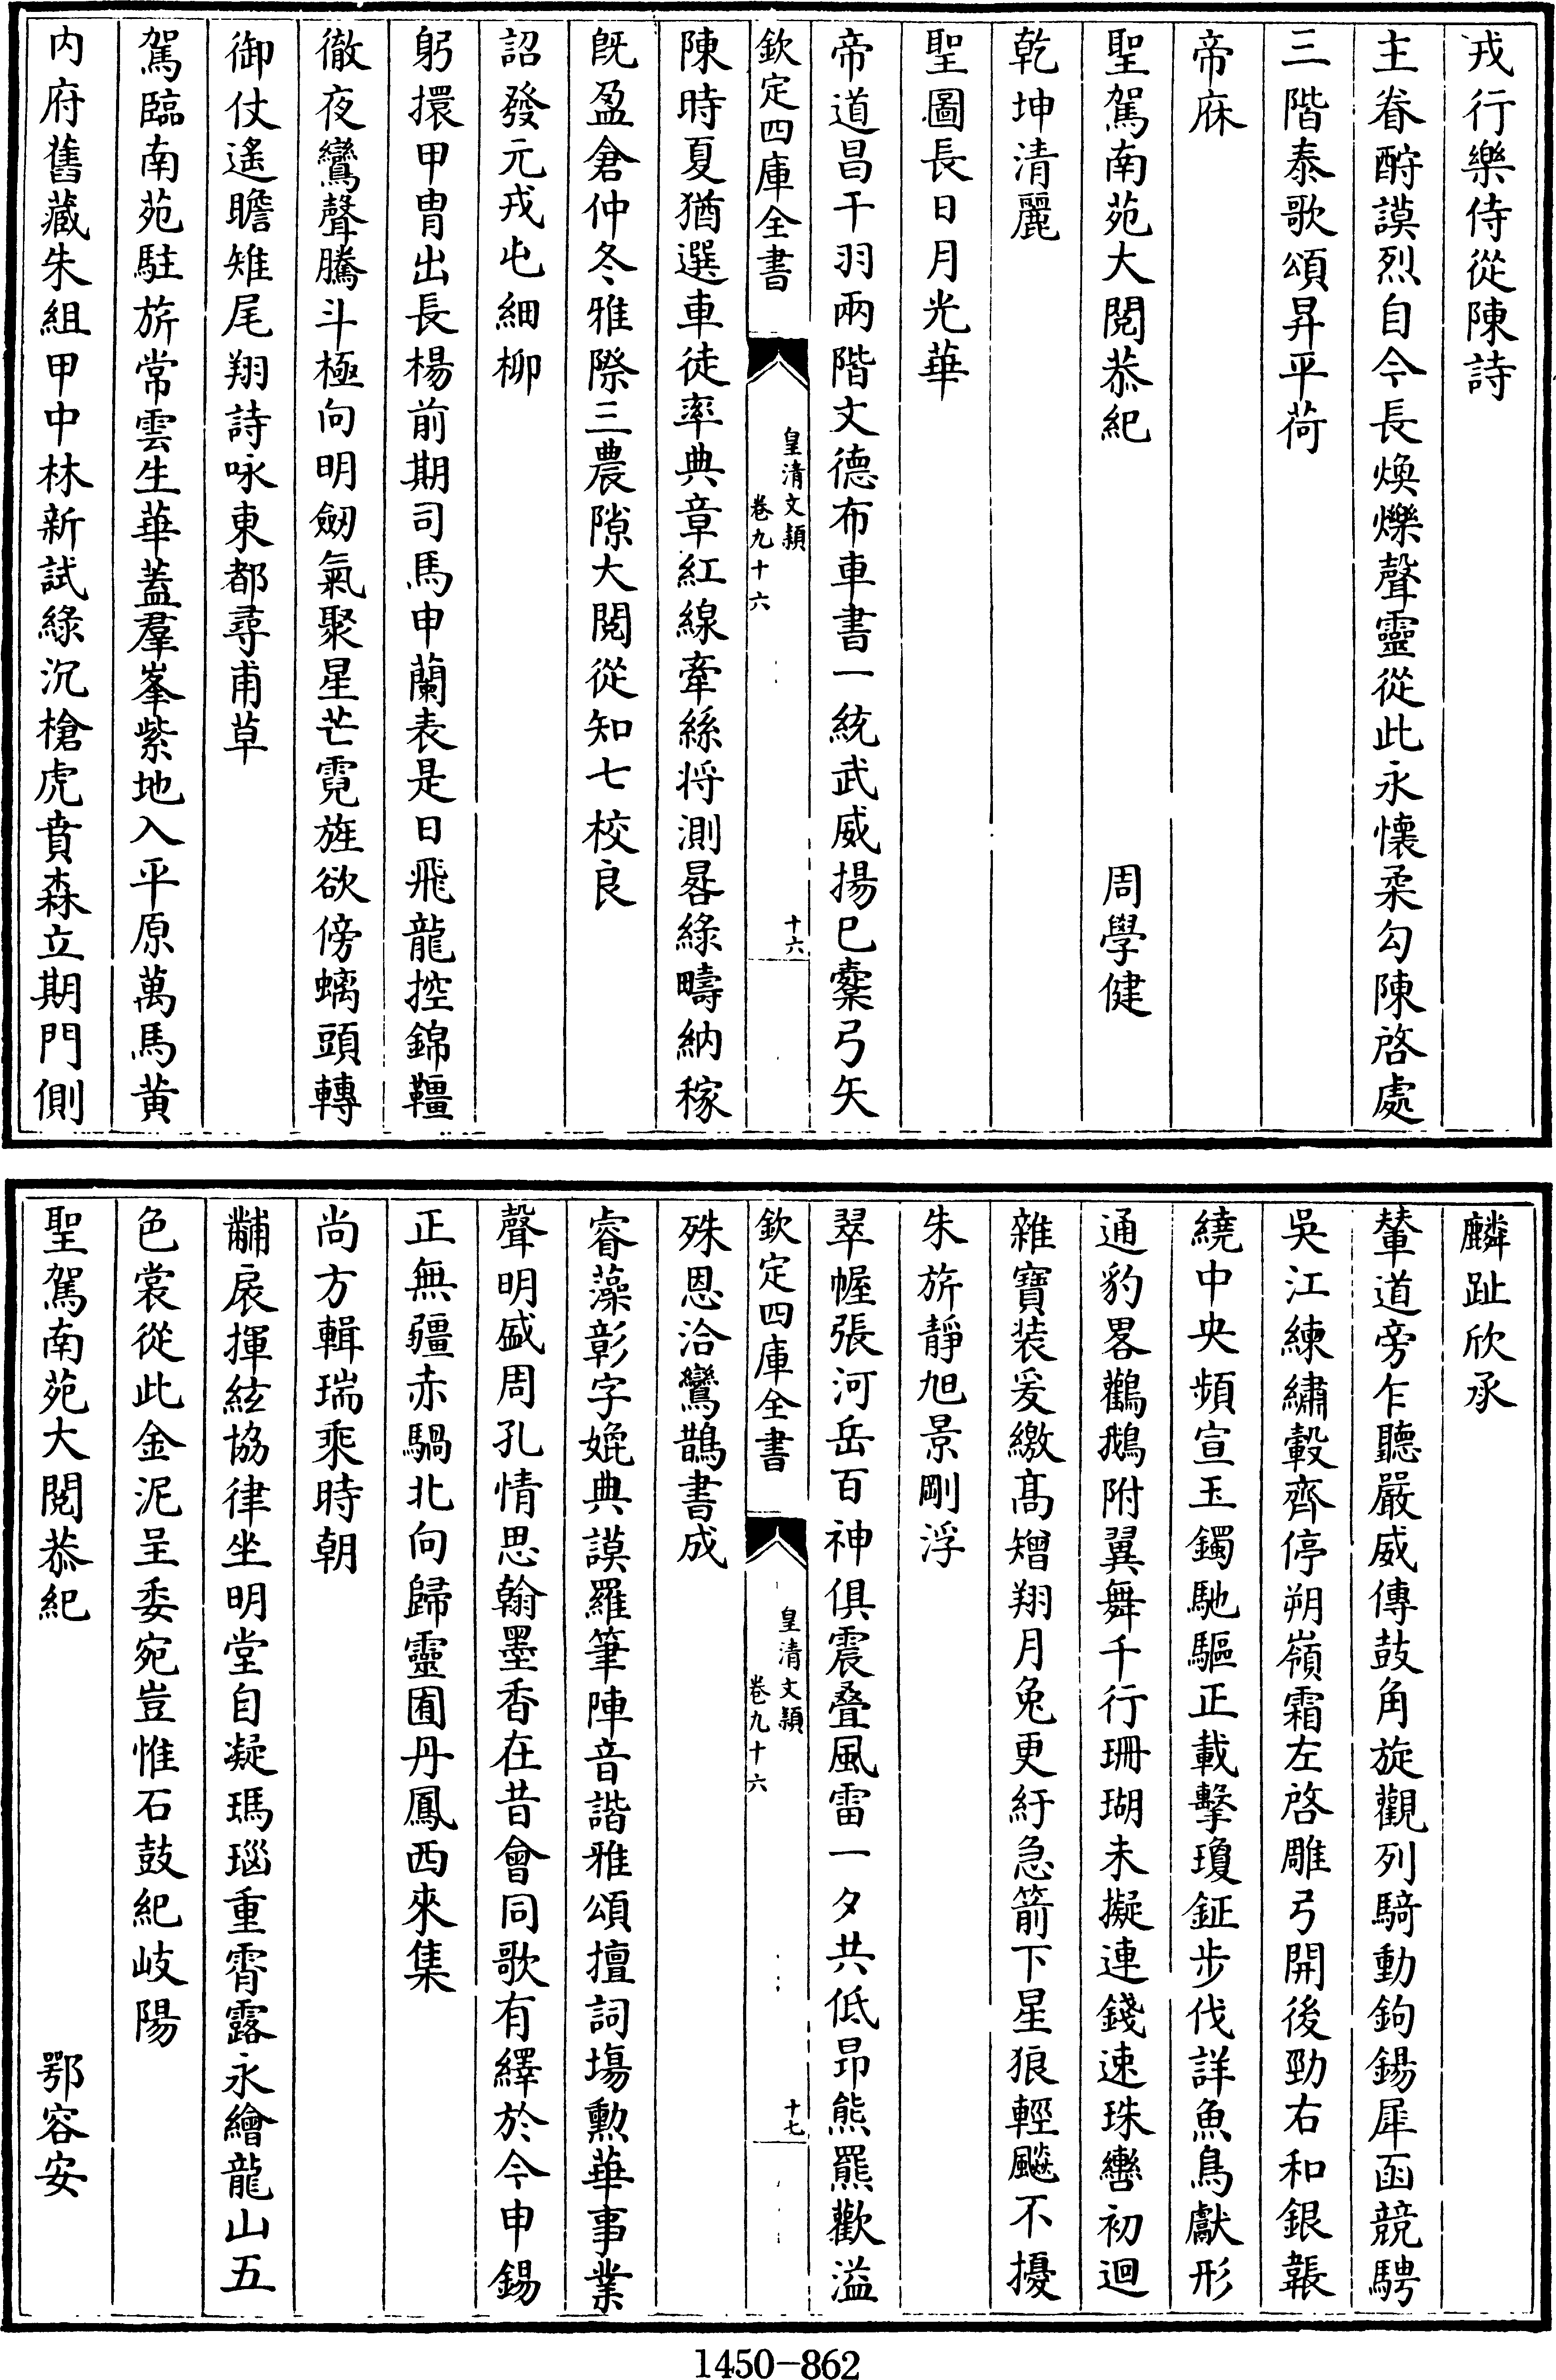 戎行樂侍從陳詩
主眷酧謨烈自今長煥爍聲靈從此永懷柔勾陳啓處
三階泰歌頌昇平荷
帝庥
聖駕南苑大閱恭紀 周學健
乾坤清麗
聖圖長日月光華
帝道昌干羽兩階文德布車書一統武威揚巳櫜弓矢
欽定四庫全書 皇清文穎 卷九十六 十六
陳時夏猶選車徒率典章紅線牽絲将測晷綠疇納稼
既盈倉仲冬雅際三農隙大閱從知七校良
詔發元戎屯細柳
躬擐甲胄出長楊前期司馬申蘭表是日飛龍控錦韁
徹夜鸞聲騰斗極向明劒氣聚星芒霓旌欲傍螭頭轉
御仗遙瞻雉尾翔詩咏東都尋甫草
駕臨南苑駐旂常雲生華蓋羣峯紫地入平原萬馬黄
内府舊藏朱組甲中林新試綠沉槍虎賁森立期門側
麟趾欣承
輦道旁乍聽嚴威傳鼓角旋觀列騎動鉤鍚犀函競騁
吳江練繡轂齊停朔嶺霜左啓雕弓開後勁右和銀韔
繞中央頻宣玉鐲馳驅正載擊瓊鉦步伐詳魚鳥獻形
通豹畧鸛鵝附翼舞千行珊瑚未擬連錢速珠轡初迴
雜寶装爰繳高矰翔月兔更紆急箭下星狼輕飈不擾
朱旂靜旭景剛浮
翠幄張河岳百神俱震叠風雷一夕共低昻熊羆歡溢
欽定四庫全書 皇清文穎 卷九十六 十七
殊恩洽鸞鵲書成
睿藻彰字媲典謨羅筆陣音諧雅頌擅詞塲勲華事業
聲明盛周孔情思翰墨香在昔會同歌有繹於今申錫
正無疆赤騧北向歸靈囿丹鳳西來集
尚方輯瑞乘時朝
黼扆揮絃協律坐明堂自凝瑪瑙重霄露永繪龍山五
色裳從此金泥呈委宛豈惟石鼓紀岐陽
聖駕南苑大閱恭紀 鄂容安
1450-862